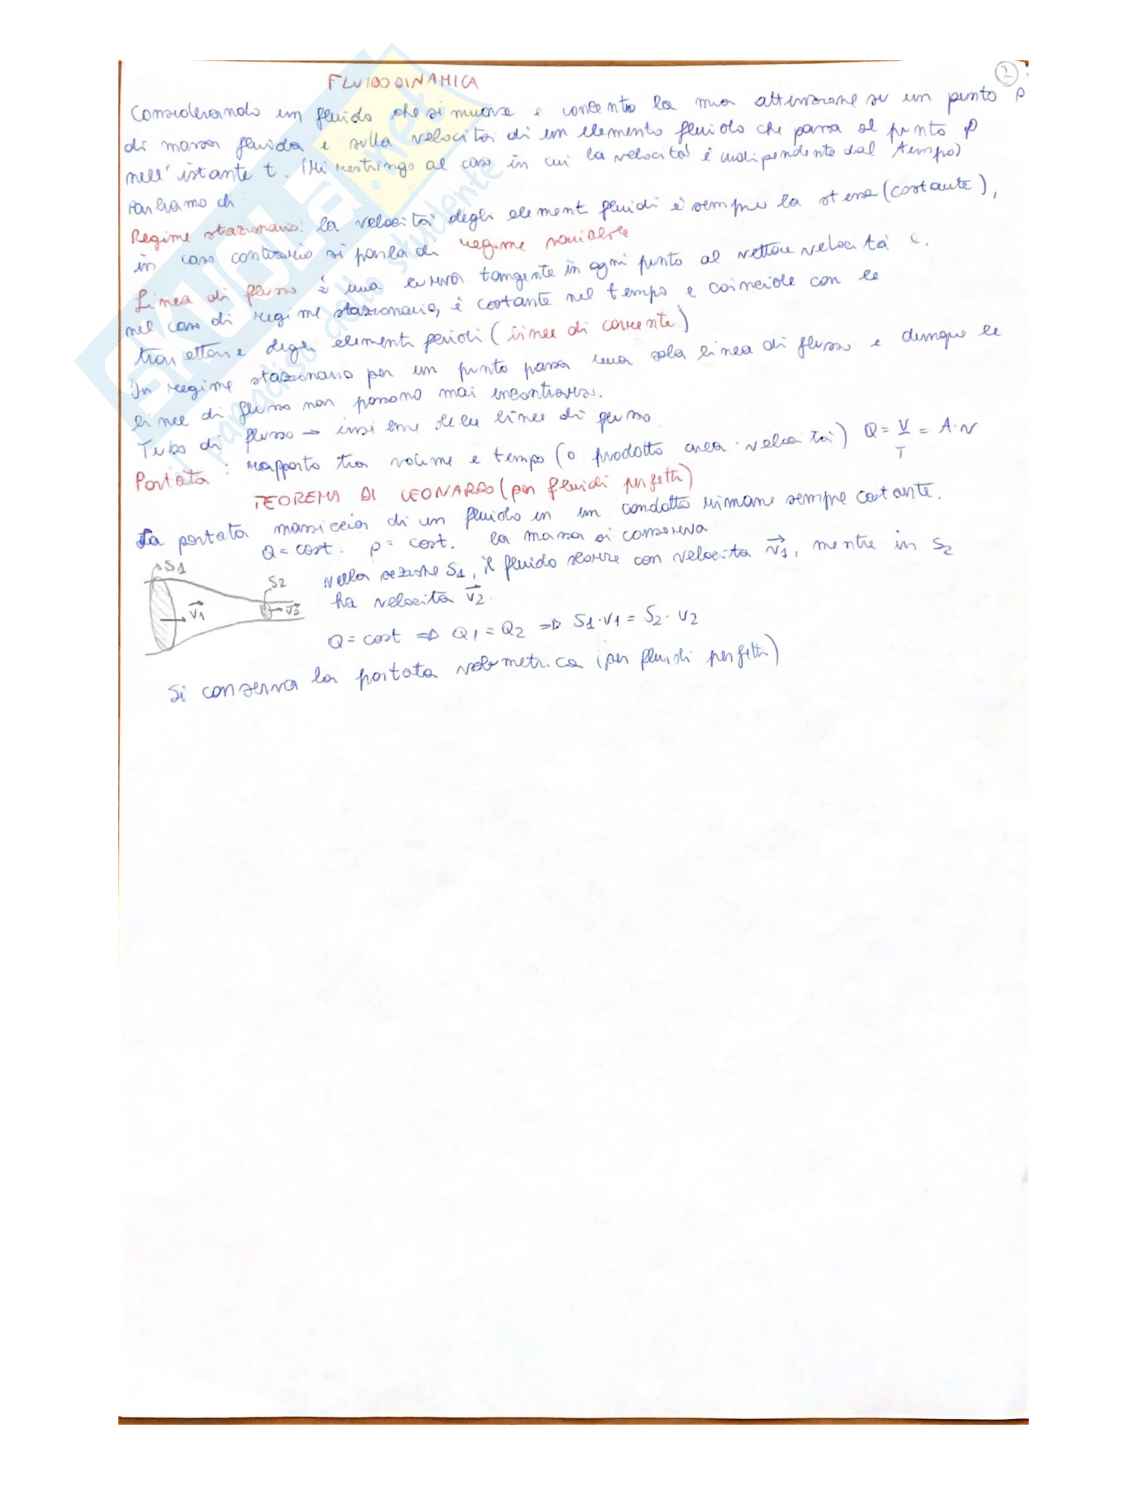 2
FLUIDODINAMICA
Considerando un fluido che si muove e concentro la mia attenzione su un punto P
di massa fluida e sulla velocità di un elemento fluido che passa al punto P
nell'istante t. (Mi restringo al caso in cui la velocità è indipendente dal tempo)
Parliamo di
Regime stazionario: la velocità degli element fluidi è sempre la stessa (costante),
in caso contrario si parla di regime variabile
Linea di flusso è una curva tangente in ogni punto al vettore velocità e.
nel caso di regime stazionario, è costante nel tempo e coincide con le
traiettorie degli elementi fluidi (linee di corrente)
In regime stazionario per un punto passa una sola linea di flusso e dunque le
linee di flusso non possono mai incontrarsi.
Tubo di flusso → insieme delle linee di flusso
Portata : rapporto tra volume e tempo (o prodotto area · velocità) Q = V/T = A·v
TEOREMA DI LEONARDO (per fluidi perfetti)
La portata massiccia di un fluido in un condotto rimane sempre costante.
Q = cost. ρ = cost. la massa si conserva
S1 S2 v1 v2
Nella sezione S1, il fluido scorre con velocità v1, mentre in S2
ha velocità v2.
Q = cost ⇒ Q1 = Q2 ⇒ S1·v1 = S2·v2
Si conserva la portata volumetrica (per fluidi perfetti)
SKUOLA.net
il paradiso dello studente